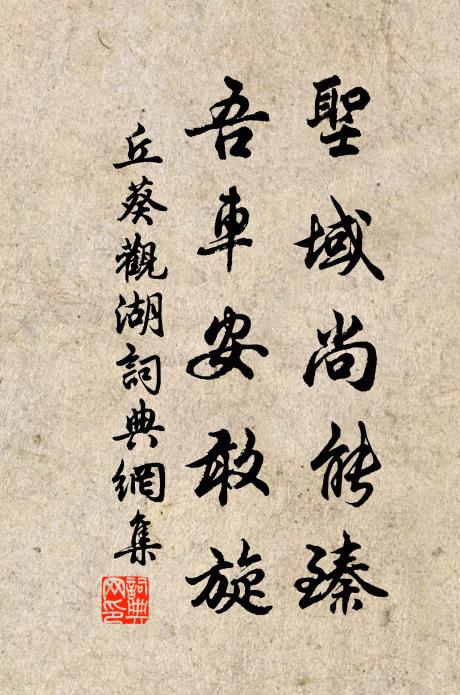 聖域尚能臻
吾車安敢旋
丘葵觀湖詞典網集
詞典
网印